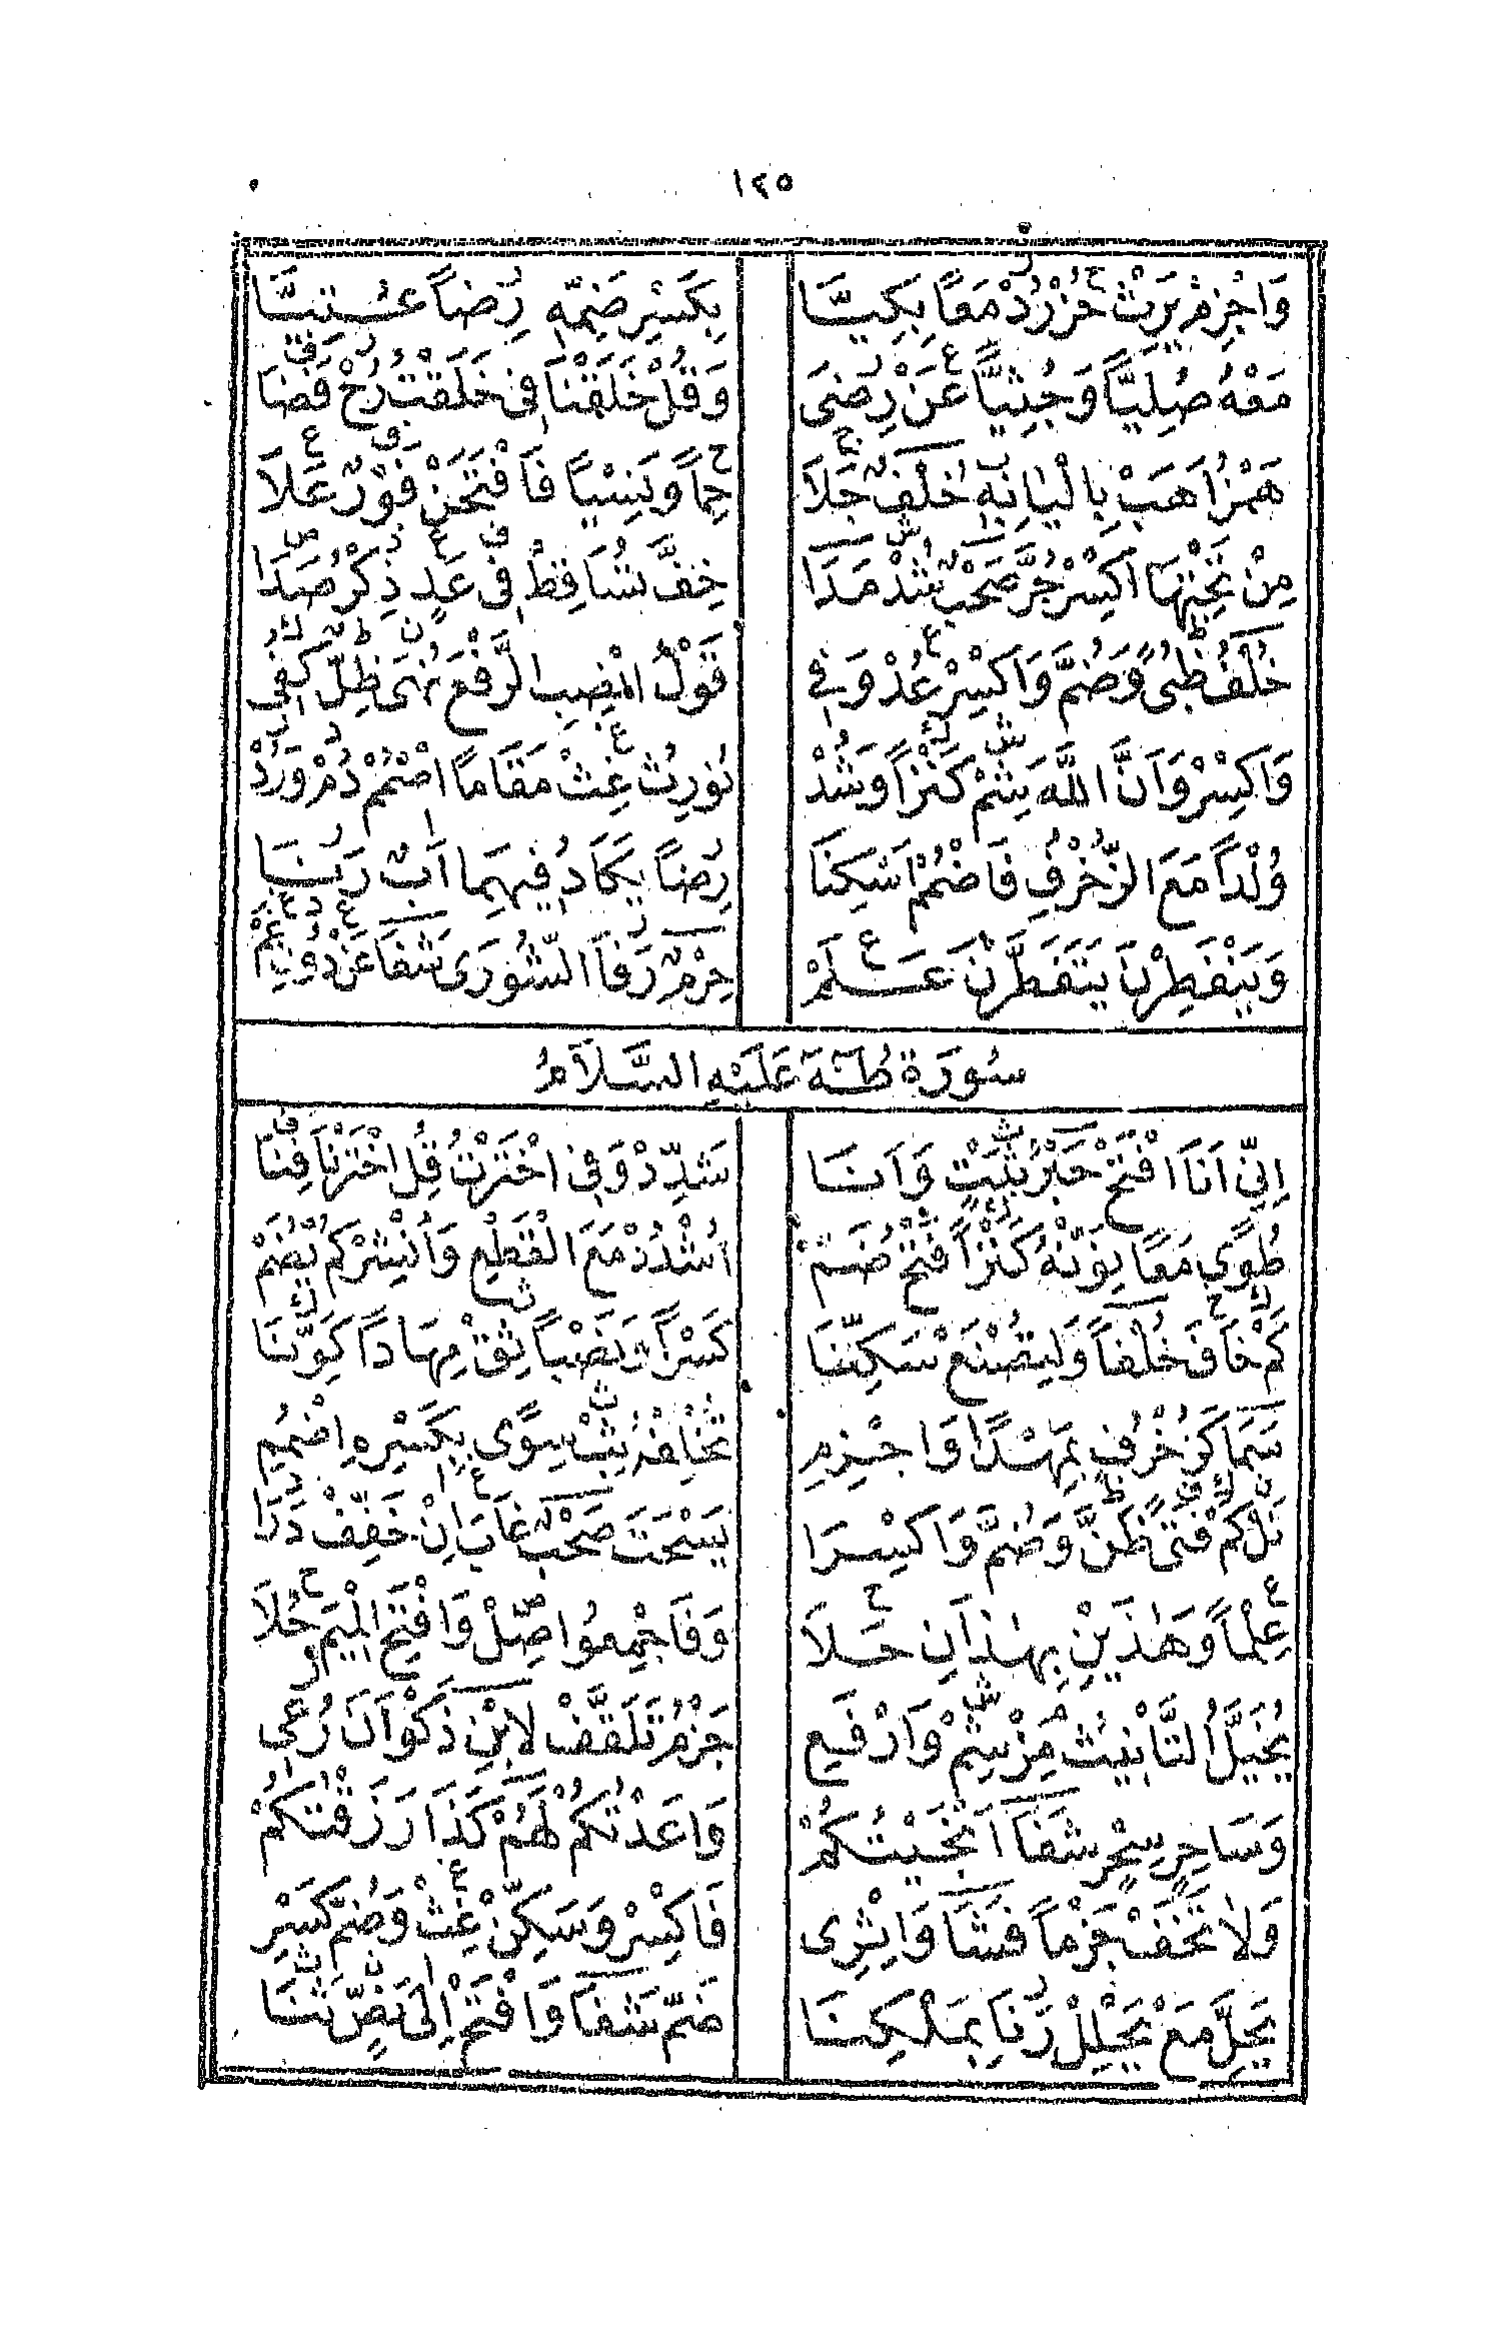 ١٢٥
وَاجْزِمْ يَرِثْ حُزْ رُدْ مَعًا بِكِيَّا بِكَسْرِ ضَمِّهِ رِضًا عُتِيَّا
مَعْهُ صُلِيَّا وَجُثِيَّا عَنْ رِضَى وَقُلْ خَلَقْنَا فِى خَلَقْتُ رُحْ فَضَا
هَمْزُ اَهَبْ بِالْيَا بِهِ خُلْفٌ جَلاَ حِمًا وَنِسْيًا فَافْتَحَنْ فَوْزٌ عَلاَ
مِنْ تَحْتِهَا اكْسِرْ جُرَّ صَحْبٌ شُذْ مَدَا خِفَّ تُسَاقِطْ فِى عَلٍ ذِكْرٌ صَدَا
خُلْفٌ ظُبىً وَضُمَّ وَاكْسِرْ عُدْ وَفِى قَوْلُ انْصِبِ الرَّفْعَ نُهَى ظِلٍّ كُفِى
وَاكْسِرْ وَاَنَّ اللهَ شِمْ كَنْزًا وَشُدْ نُوَرِّثُ غِثْ مَقَامًا اضْمُمْ دُمْ وَرُدْ
وُلْدًا مَعَ الزُّخْرُفِ فَاضْمُمْ اَسْكِنَا رِضًا يَكَادُ فِيهِمَا اَبٌ رَنَا
وَيَنْفَطِرْنَ يَتَفَطَّرْنَ عَلَمْ حِرْمٌ رَقَا الشُّورَى شَفَا عَنْ دُونِ عَمْ
سُورَةُ طٰهَ عَلَيْهِ السَّلاَمُ
اِنِّى اَنَا افْتَحْ حَبْرُ ثَبْتٍ وَاَنَا شَدِّدْ وَفِى اخْتَرْتُ قُلِ اخْتَرْنَا فِنَا
طُوًى مَعًا نَوِّنْهُ كَنْزًا فَتْحُ ضَمْ اُشْدُدْ مَعَ الْقَطْعِ وَاُشْرِكْهُ يُضَمْ
كَمْ خَافَ خُلْفًا وَلْتُصْنَعْ سَكِّنَا كَسْرًا وَنَصْبًا ثِقْ مِهَادًا كَوِّنَا
سَمَا كَزُخْرُفٍ بِمَهْدًا وَاجْزِمِ نُخْلِفْهُ ثِبْ سِوًى بِكَسْرِهِ اضْمُمِ
نَلْ كَمْ فَتًى ظَنَّ وَضُمَّ وَاكْسِرَا يَسْحَتَ صَحْبٌ غَابَ اِنْ خَفِّفْ دَرَا
عِلْمًا وَهٰذَيْنِ بِهٰذَانِ حَلاَ وَفَاجْمِعُوا صِلْ وَافْتَحِ الْمِيمَ حُلاَ
يُخَيَّلُ التَّأْنِيثُ مِنْ شِمْ وَارْفَعِ جَزْمَ تَلَقَّفْ لاِبْنِ ذَكْوَانَ رُعِى
وَسَاحِرٍ سِحْرٍ شَفَا اَنْجَيْتُكُمْ وَاعَدْتُكُمْ لَهُمْ كَذَا رَزَقْتُكُمْ
وَلاَ تَخَفْ جَزْمًا فَشَا وَاِثْرِى فَاكْسِرْ وَسَكِّنْ غِثْ وَضُمَّ كَسْرِ
يَحِلَّ مَعْ يَحْلِلْ رَنَا بِمَلْكِنَا ضَمٌّ شَفَا وَافْتَحْ اِلَى نَصٍّ ثَنَا